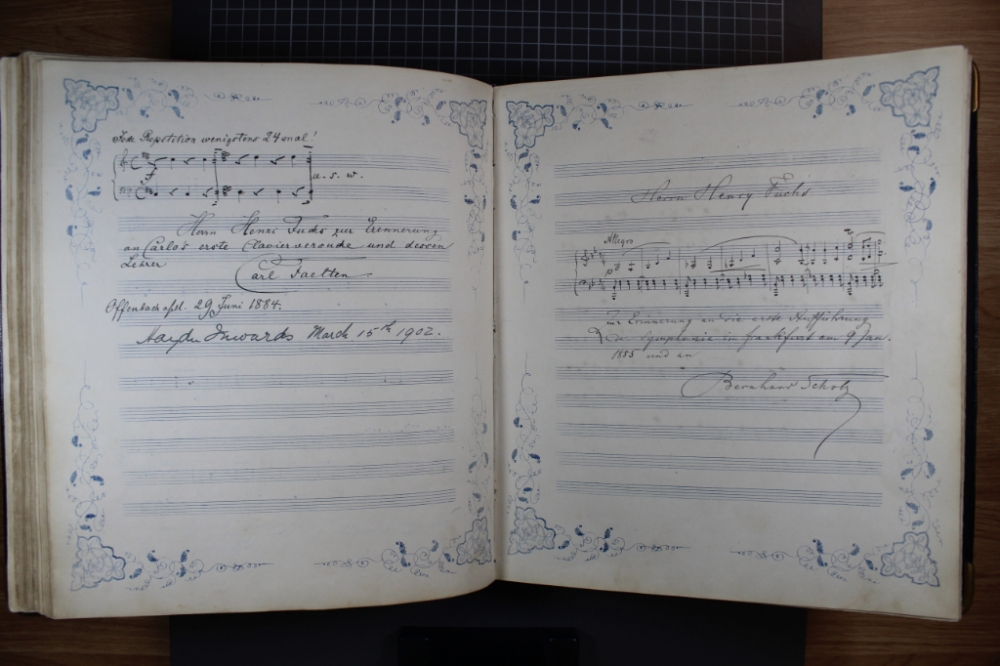 Jede Repetition wenigstens 24 mal!
u. s. w.
Herrn Henri Fuchs zur Erinnerung
an Carlo's erste Clavierstunde und dessen
Lehrer
Carl Faelten
Offenbach a/M. 29 Juni 1884.
Haydn Inwards March 15th 1902.
Herrn Henry Fuchs
Allegro
p
Zur Erinnerung an die erste Aufführung
der Symphonie in Frankfurt am 9 Jan.
1885 und an
Bernhard Scholz